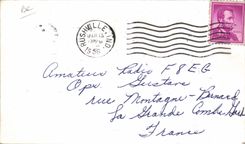 RUSHVILLE, IND.
1956
Amateur Radio F8EG
Opr. Gustave
rue Montagne-Renard
La Grande Combe
France